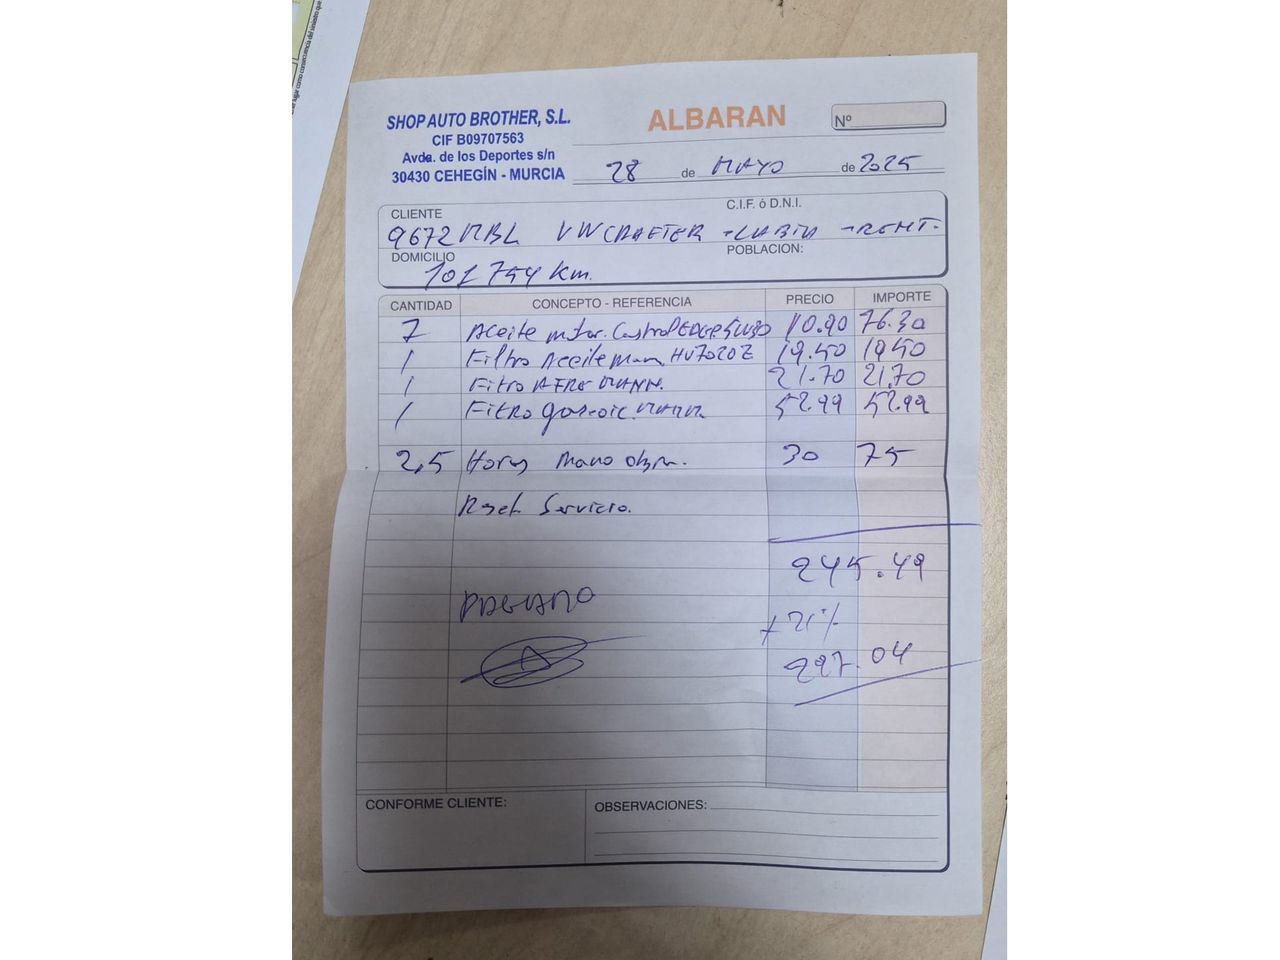 SHOP AUTO BROTHER, S.L.
CIF B09707563
Avda. de los Deportes s/n
30430 CEHEGÍN - MURCIA
ALBARAN
Nº
28 de MAYO de 2025
CLIENTE
C.I.F. ó D.N.I.
9672MBL VW CRAFTER
DOMICILIO
POBLACION:
101754 Km.
CANTIDAD CONCEPTO - REFERENCIA PRECIO IMPORTE
7 Aceite motor. Castrol EDGE 5W30 10.90 76.30
1 Filtro Aceite mann HU7020Z 19.50 19.50
1 Fitro AIRE MANN. 21.70 21.70
1 Fitro gasoic. MANN. 52.99 52.99
2,5 Horas Mano obra. 30 75
Reset Servicio.
245.49
PAGADO
+ 21%
297.04
CONFORME CLIENTE:
OBSERVACIONES: